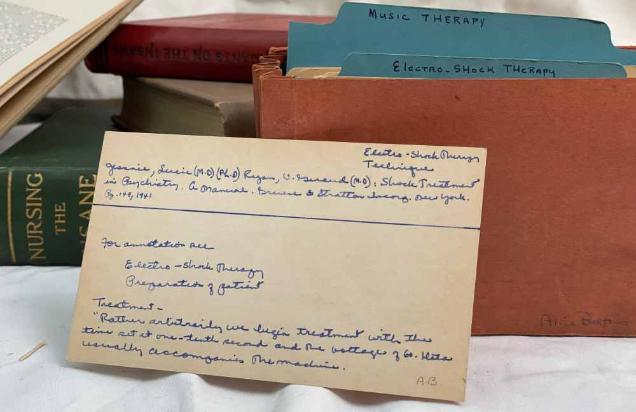 MUSIC THERAPY
ELECTRO-SHOCK THERAPY
NURSING
THE
ANE
ANTS ON THE INSANE
Electro-Shock Therapy
Technique
Jessner, Lucie (M.D) (Ph.D) Ryan, V. Gerard (M.D): Shock Treatment
in Psychiatry. A Manual. Grune & Stratton New York.
Pg. 149, 1941
For annotation see
Electro-Shock Therapy
Preparation of patient
Treatment-
"Rather arbitrarily we begin treatment with the
time set at one-tenth second and the voltage of 60.
usually accompanies the machine.
A.B.